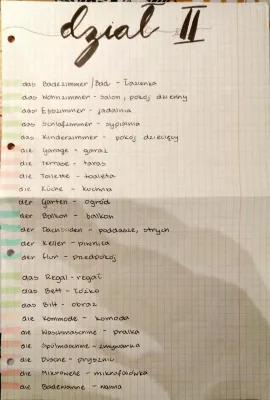 dział II
das Badezimmer/Bad - łazienka
das Wohnzimmer - salon, pokój dzienny
das Esszimmer - jadalnia
das Schlafzimmer - sypialnia
das Kinderzimmer - pokój dziecięcy
die Garage - garaż
die Terrasse - taras
die Toilette - toaleta
die Küche - kuchnia
der Garten - ogród
der Balkon - balkon
der Dachboden - poddasze, strych
der Keller - piwnica
der Flur - przedpokój
das Regal - regał
das Bett - łóżko
das Bilt - obraz
die Kommode - komoda
die Waschmaschine - pralka
die Spülmaschine - zmywarka
die Dusche - prysznic
die Mikrowele - mikrofalówka
die Badewanne - wanna